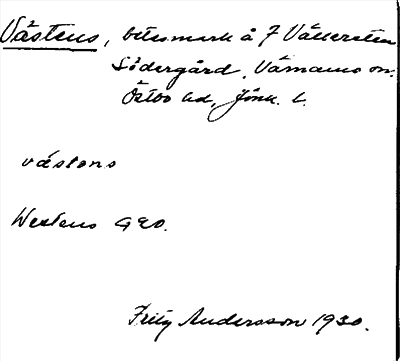 Västens, betesmark å 7 Vällersten
Södergård, Värnamo sn.
Östbo hd, Jönk. l.
västens
Westens GEO.
Fritz Andersson 1930.